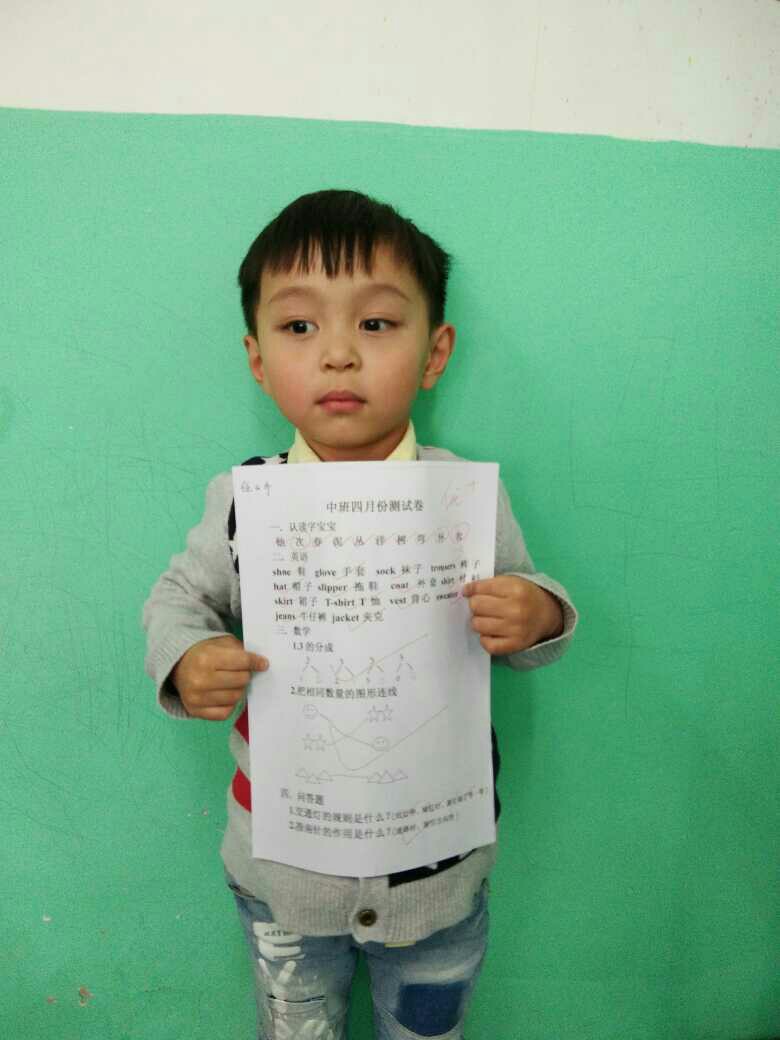 优+
中班四月份测试卷
一、认读字宝宝
次 春 泥 丛 祥 树 弯
二、英语
shoe 鞋 glove 手套 sock 袜子 trousers 裤子
hat 帽子 slipper 拖鞋 coat 外套 shirt 衬
skirt 裙子 T-shirt T恤 vest 背心 sweater
jeans 牛仔裤 jacket 夹克
三、数学
1.3 的分成
3 3 3 3
2.把相同数量的图形连线
四、问答题
1.交通灯的规则是什么?(红灯停,绿灯行,黄灯
2.指南针的作用是什么?(迷路时,